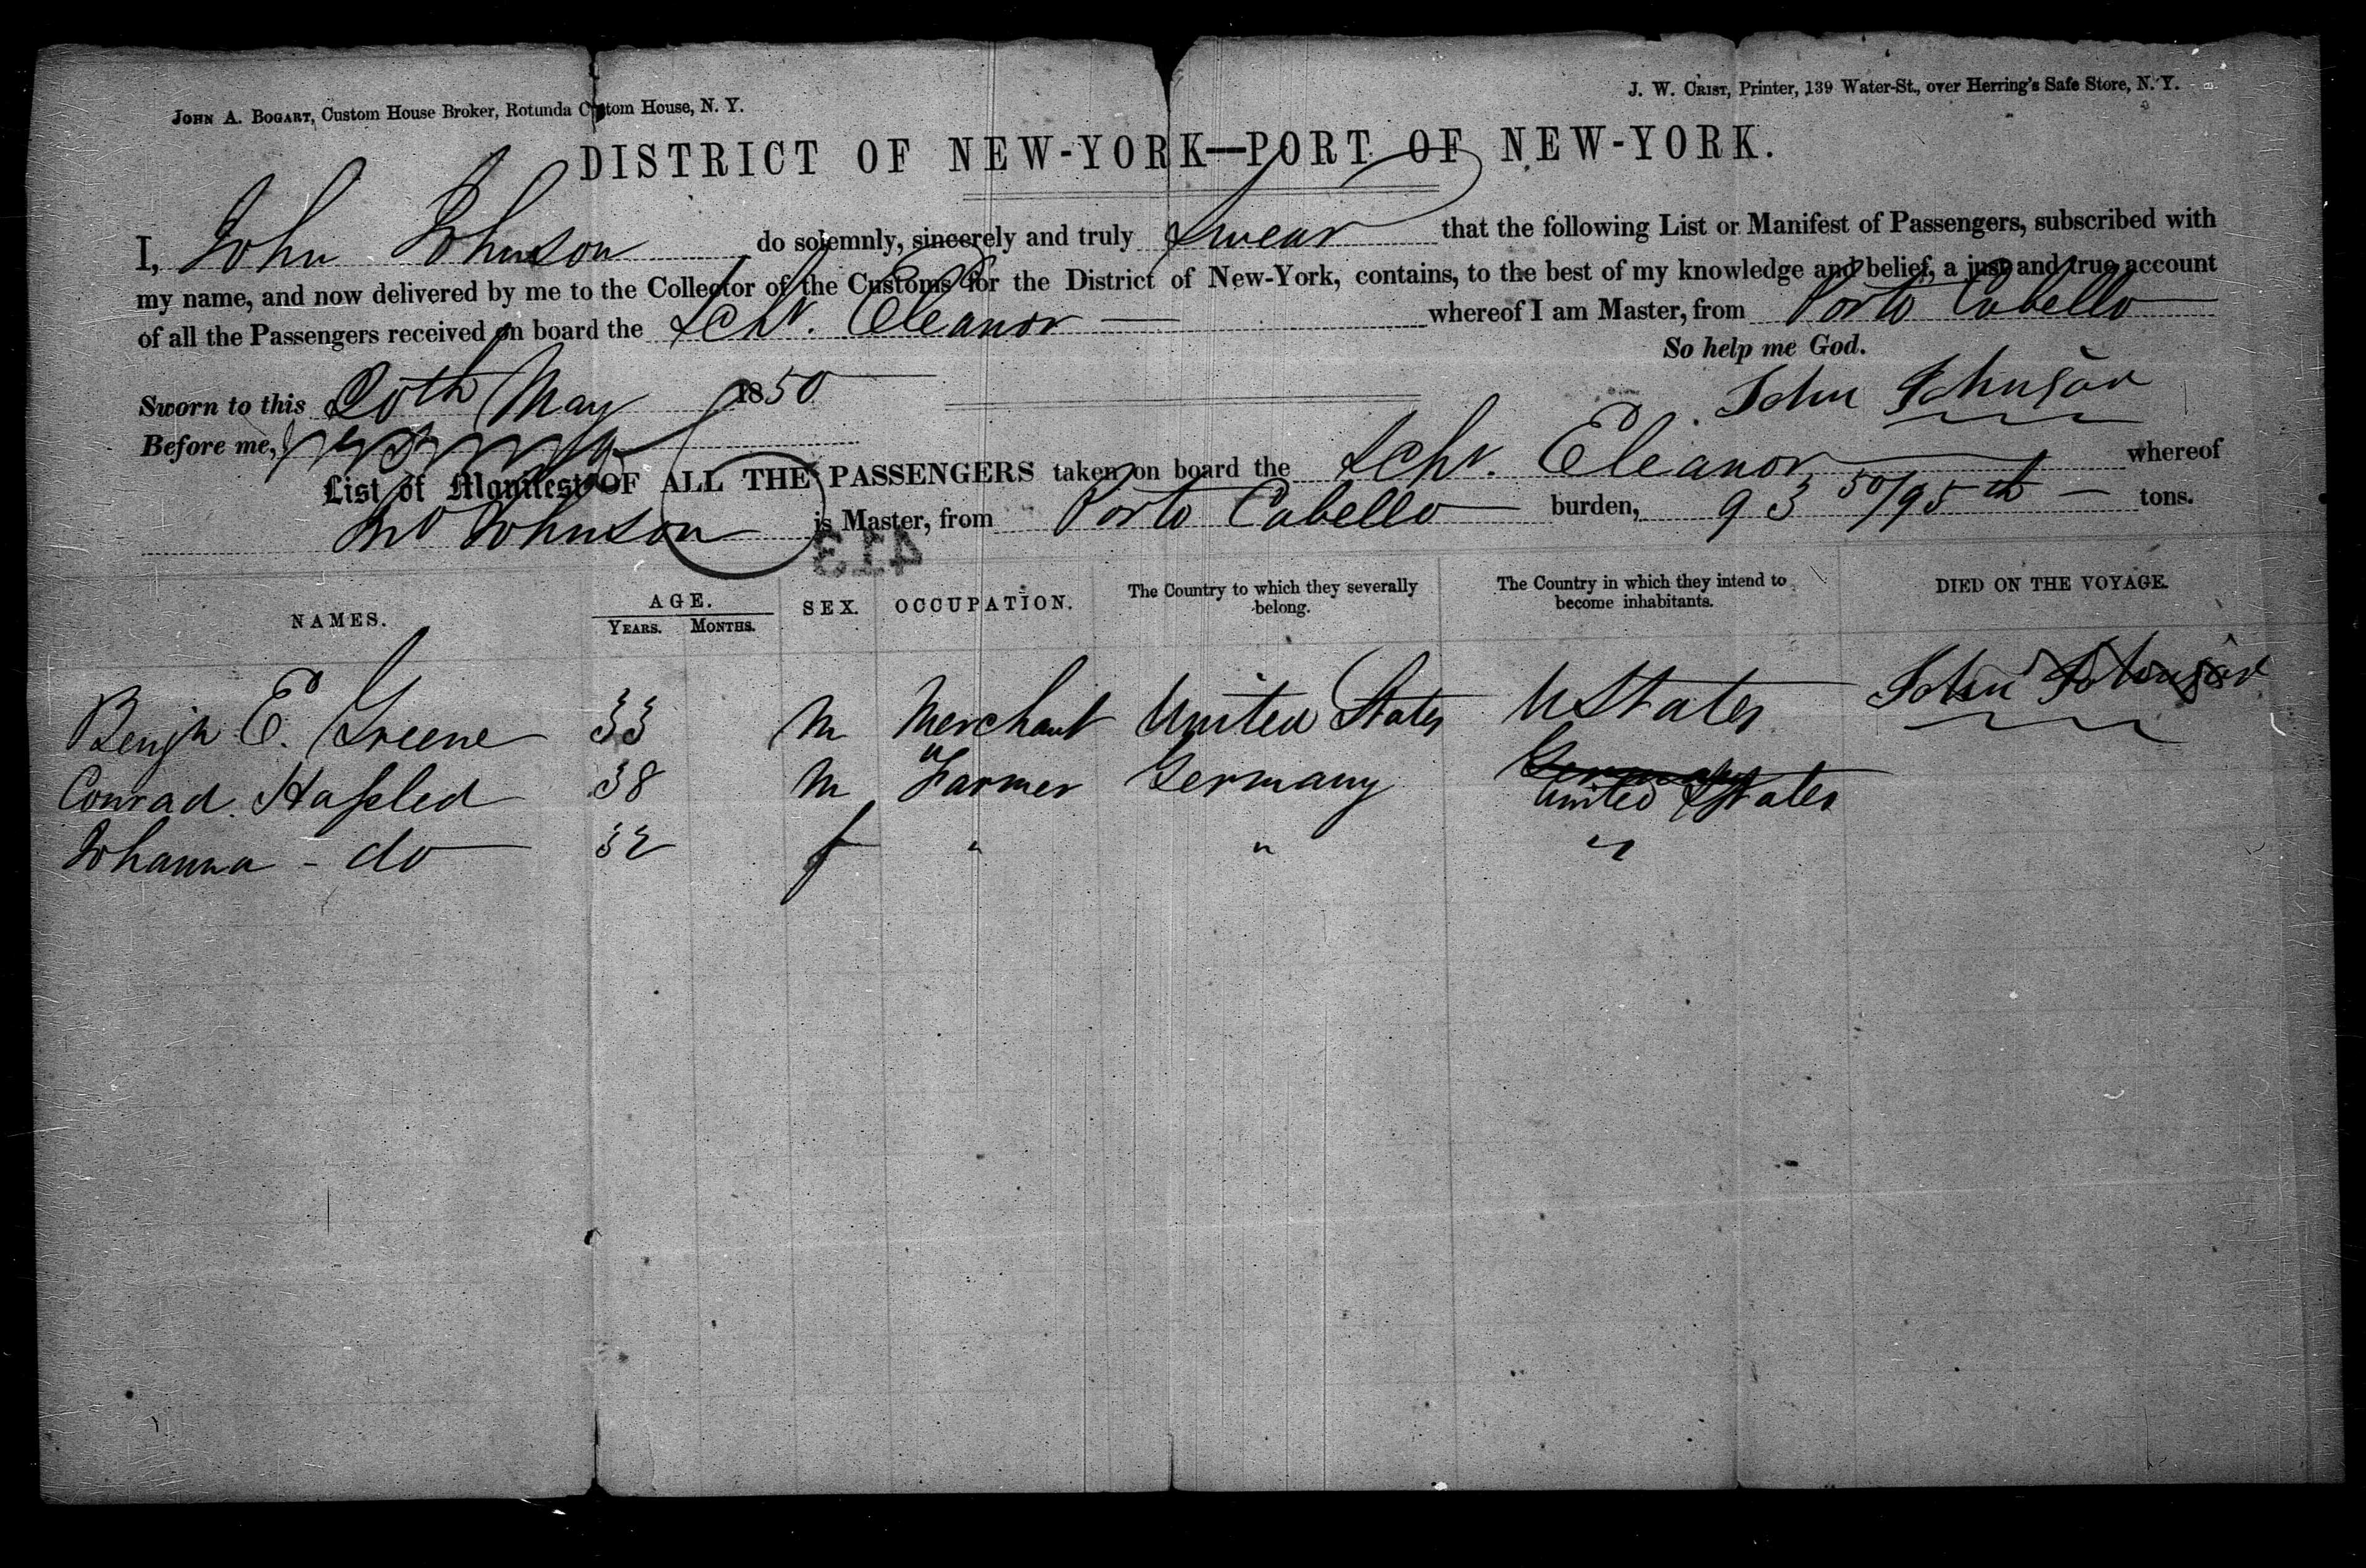 JOHN A. BOGART, Custom House Broker, Rotunda Custom House, N. Y.
J. W. CRIST, Printer, 139 Water-St., over Herring's Safe Store, N. Y.
DISTRICT OF NEW-YORK—PORT OF NEW-YORK.
I, John Johnson do solemnly, sincerely and truly swear that the following List or Manifest of Passengers, subscribed with
my name, and now delivered by me to the Collector of the Customs for the District of New-York, contains, to the best of my knowledge and belief, a just and true account
of all the Passengers received on board the Schr. Eleanor whereof I am Master, from Porto Cabello
So help me God.
Sworn to this 20th May 1850
John Johnson
Before me,
List or Manifest OF ALL THE PASSENGERS taken on board the Schr. Eleanor whereof
Jno Johnson is Master, from Porto Cabello burden, 93 50/95th tons.
413
NAMES. AGE. YEARS. MONTHS. SEX. OCCUPATION. The Country to which they severally belong. The Country in which they intend to become inhabitants. DIED ON THE VOYAGE.
Benjn E. Greene 33 M Merchant United States U States John Johnson
Conrad Hassled 38 M Farmer Germany Germany United States
Johanna - do 32 f " " "